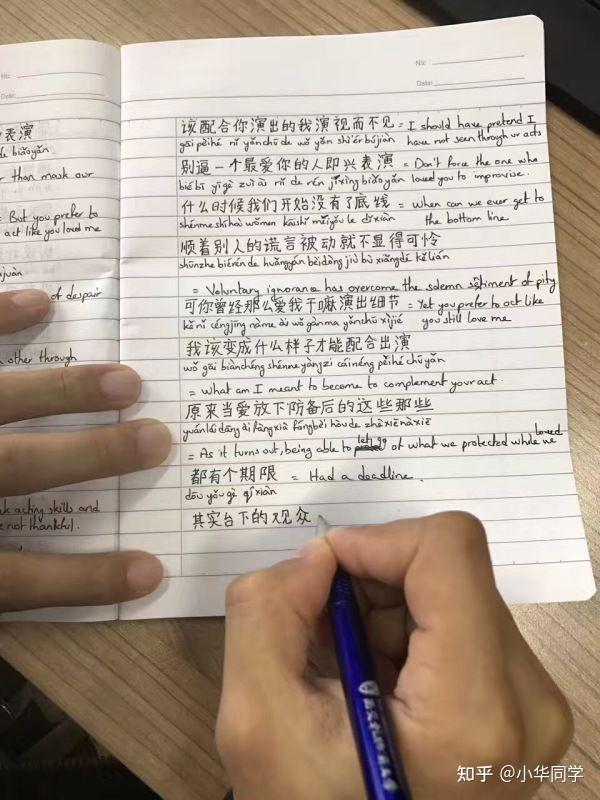 表演
de biǎoyǎn
r than mask our
= But you prefer to
act like you loved me
ajuàn
of despair
n other through
ek acting skills and
re not thankful.
No:
Date:
No:
Date:
该配合你演出的我演视而不见 = I should have pretend I
gāi pèihé nǐ yǎnchū de wǒ yǎn shì'ér bújiàn have not seen through ur acts
别逼一个最爱你的人即兴表演 = Don't force the one who
bié bī yīgè zuì ài nǐ de rén jíxìng biǎoyǎn loved you to improvise.
什么时候我们开始没有了底线 = when can we ever get to
shénme shíhòu wǒmen kāishǐ méiyǒu le dǐxiàn the bottom line
顺着别人的谎言被动就不显得可怜
shùnzhe biérén de huǎngyán bèidòng jiù bù xiǎndé kělián
= Voluntary ignorance has overcome the solemn sentiment of pity
可你曾经那么爱我干嘛演出细节 = Yet you prefer to act like
kě nǐ céngjīng nàme ài wǒ gànma yǎnchū xìjié you still love me
我该变成什么样子才能配合出演
wǒ gāi biànchéng shénme yàngzi cáinéng pèihé chūyǎn
= what am I meant to become to complement your act.
原来当爱放下防备后的这些那些
yuánlái dāng ài fàngxià fángbèi hòu de zhèxiē nàxiē
= As it turns out, being able to let go of what we protected while we loved
都有个期限 = Had a deadline.
dōu yǒu gè qīxiàn
其实台下的观众
知乎 @小华同学